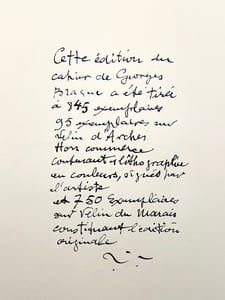 Cette édition du
cahier de Georges
Braque a été tiré
à 845 exemplaires
95 exemplaires sur
Vélin d'Arches
Hors commerce
contenant 1 lithographie
en couleurs, signés par
l'artiste
et 750 Exemplaires
sur Vélin du Marais
constituant l'édition
originale